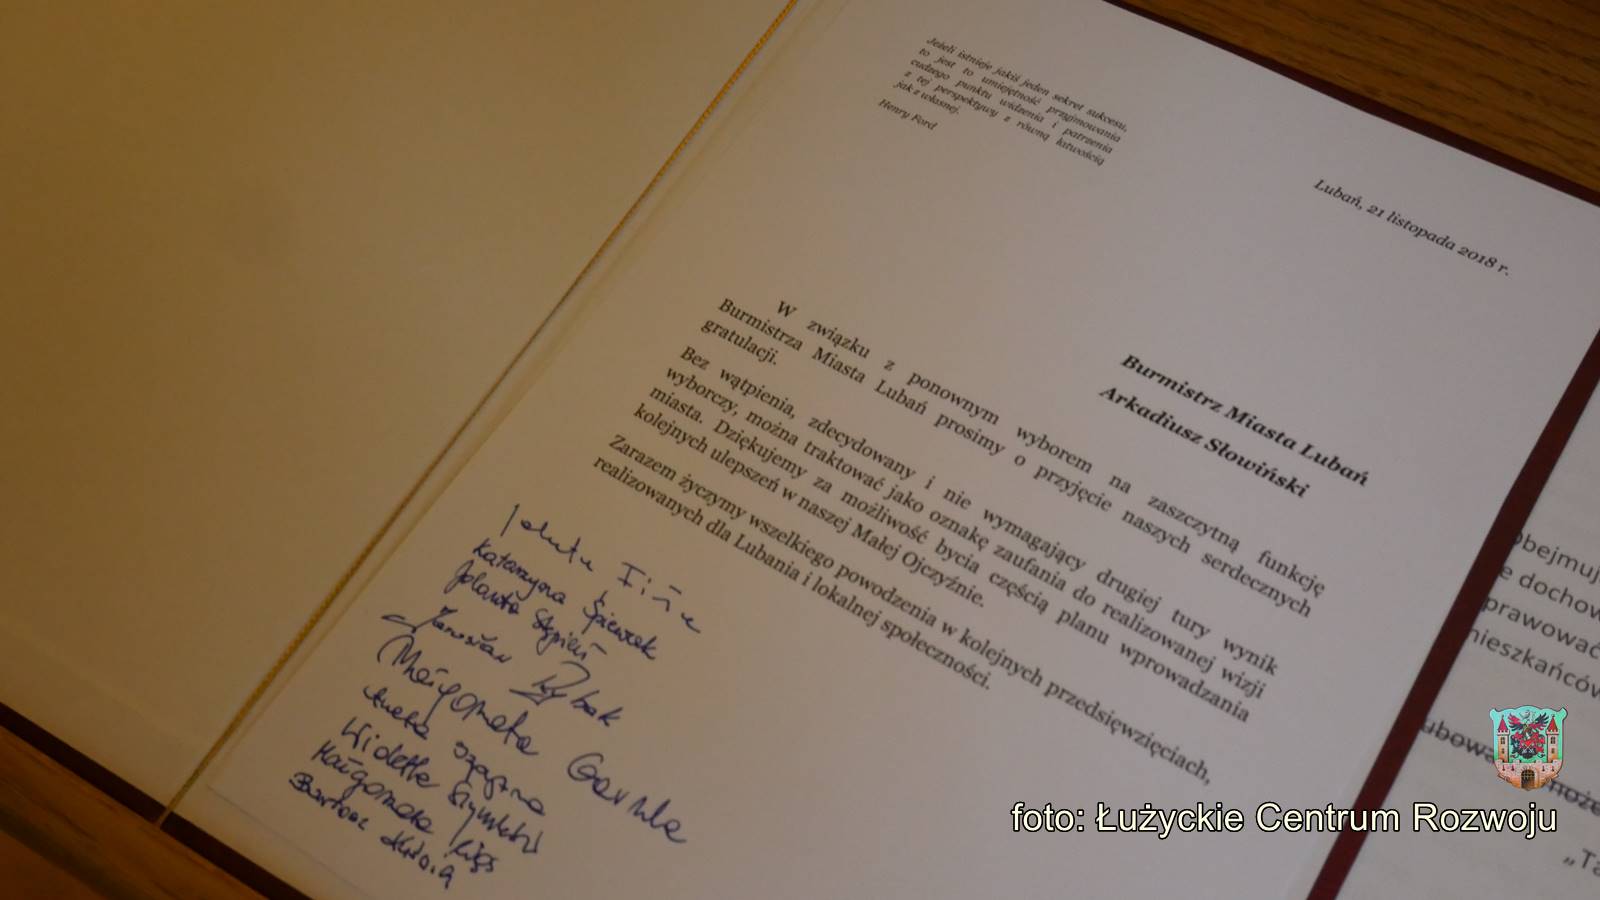 Jeżeli istnieje jakiś jeden sekret sukcesu,
to jest to umiejętność przyjmowania
cudzego punktu widzenia i patrzenia
z tej perspektywy z równą łatwością
jak z własnej.
Henry Ford
Lubań, 21 listopada 2018 r.
Burmistrz Miasta Lubań
Arkadiusz Słowiński
W związku z ponownym wyborem na zaszczytną funkcję
Burmistrza Miasta Lubań prosimy o przyjęcie naszych serdecznych
gratulacji.
Bez wątpienia, zdecydowany i nie wymagający drugiej tury wynik
wyborczy, można traktować jako oznakę zaufania do realizowanej wizji
miasta. Dziękujemy za możliwość bycia częścią planu wprowadzania
kolejnych ulepszeń w naszej Małej Ojczyźnie.
Zarazem życzymy wszelkiego powodzenia w kolejnych przedsięwzięciach,
realizowanych dla Lubania i lokalnej społeczności.
Katarzyna Śpiewak
Jolanta Stępień
Jarosław Rybak
Małgorzata
Aneta
Małgorzata
Bartosz
bejmuj
e dochow
prawować
mieszkańców
ubowa
może
„Ta
foto: Łużyckie Centrum Rozwoju